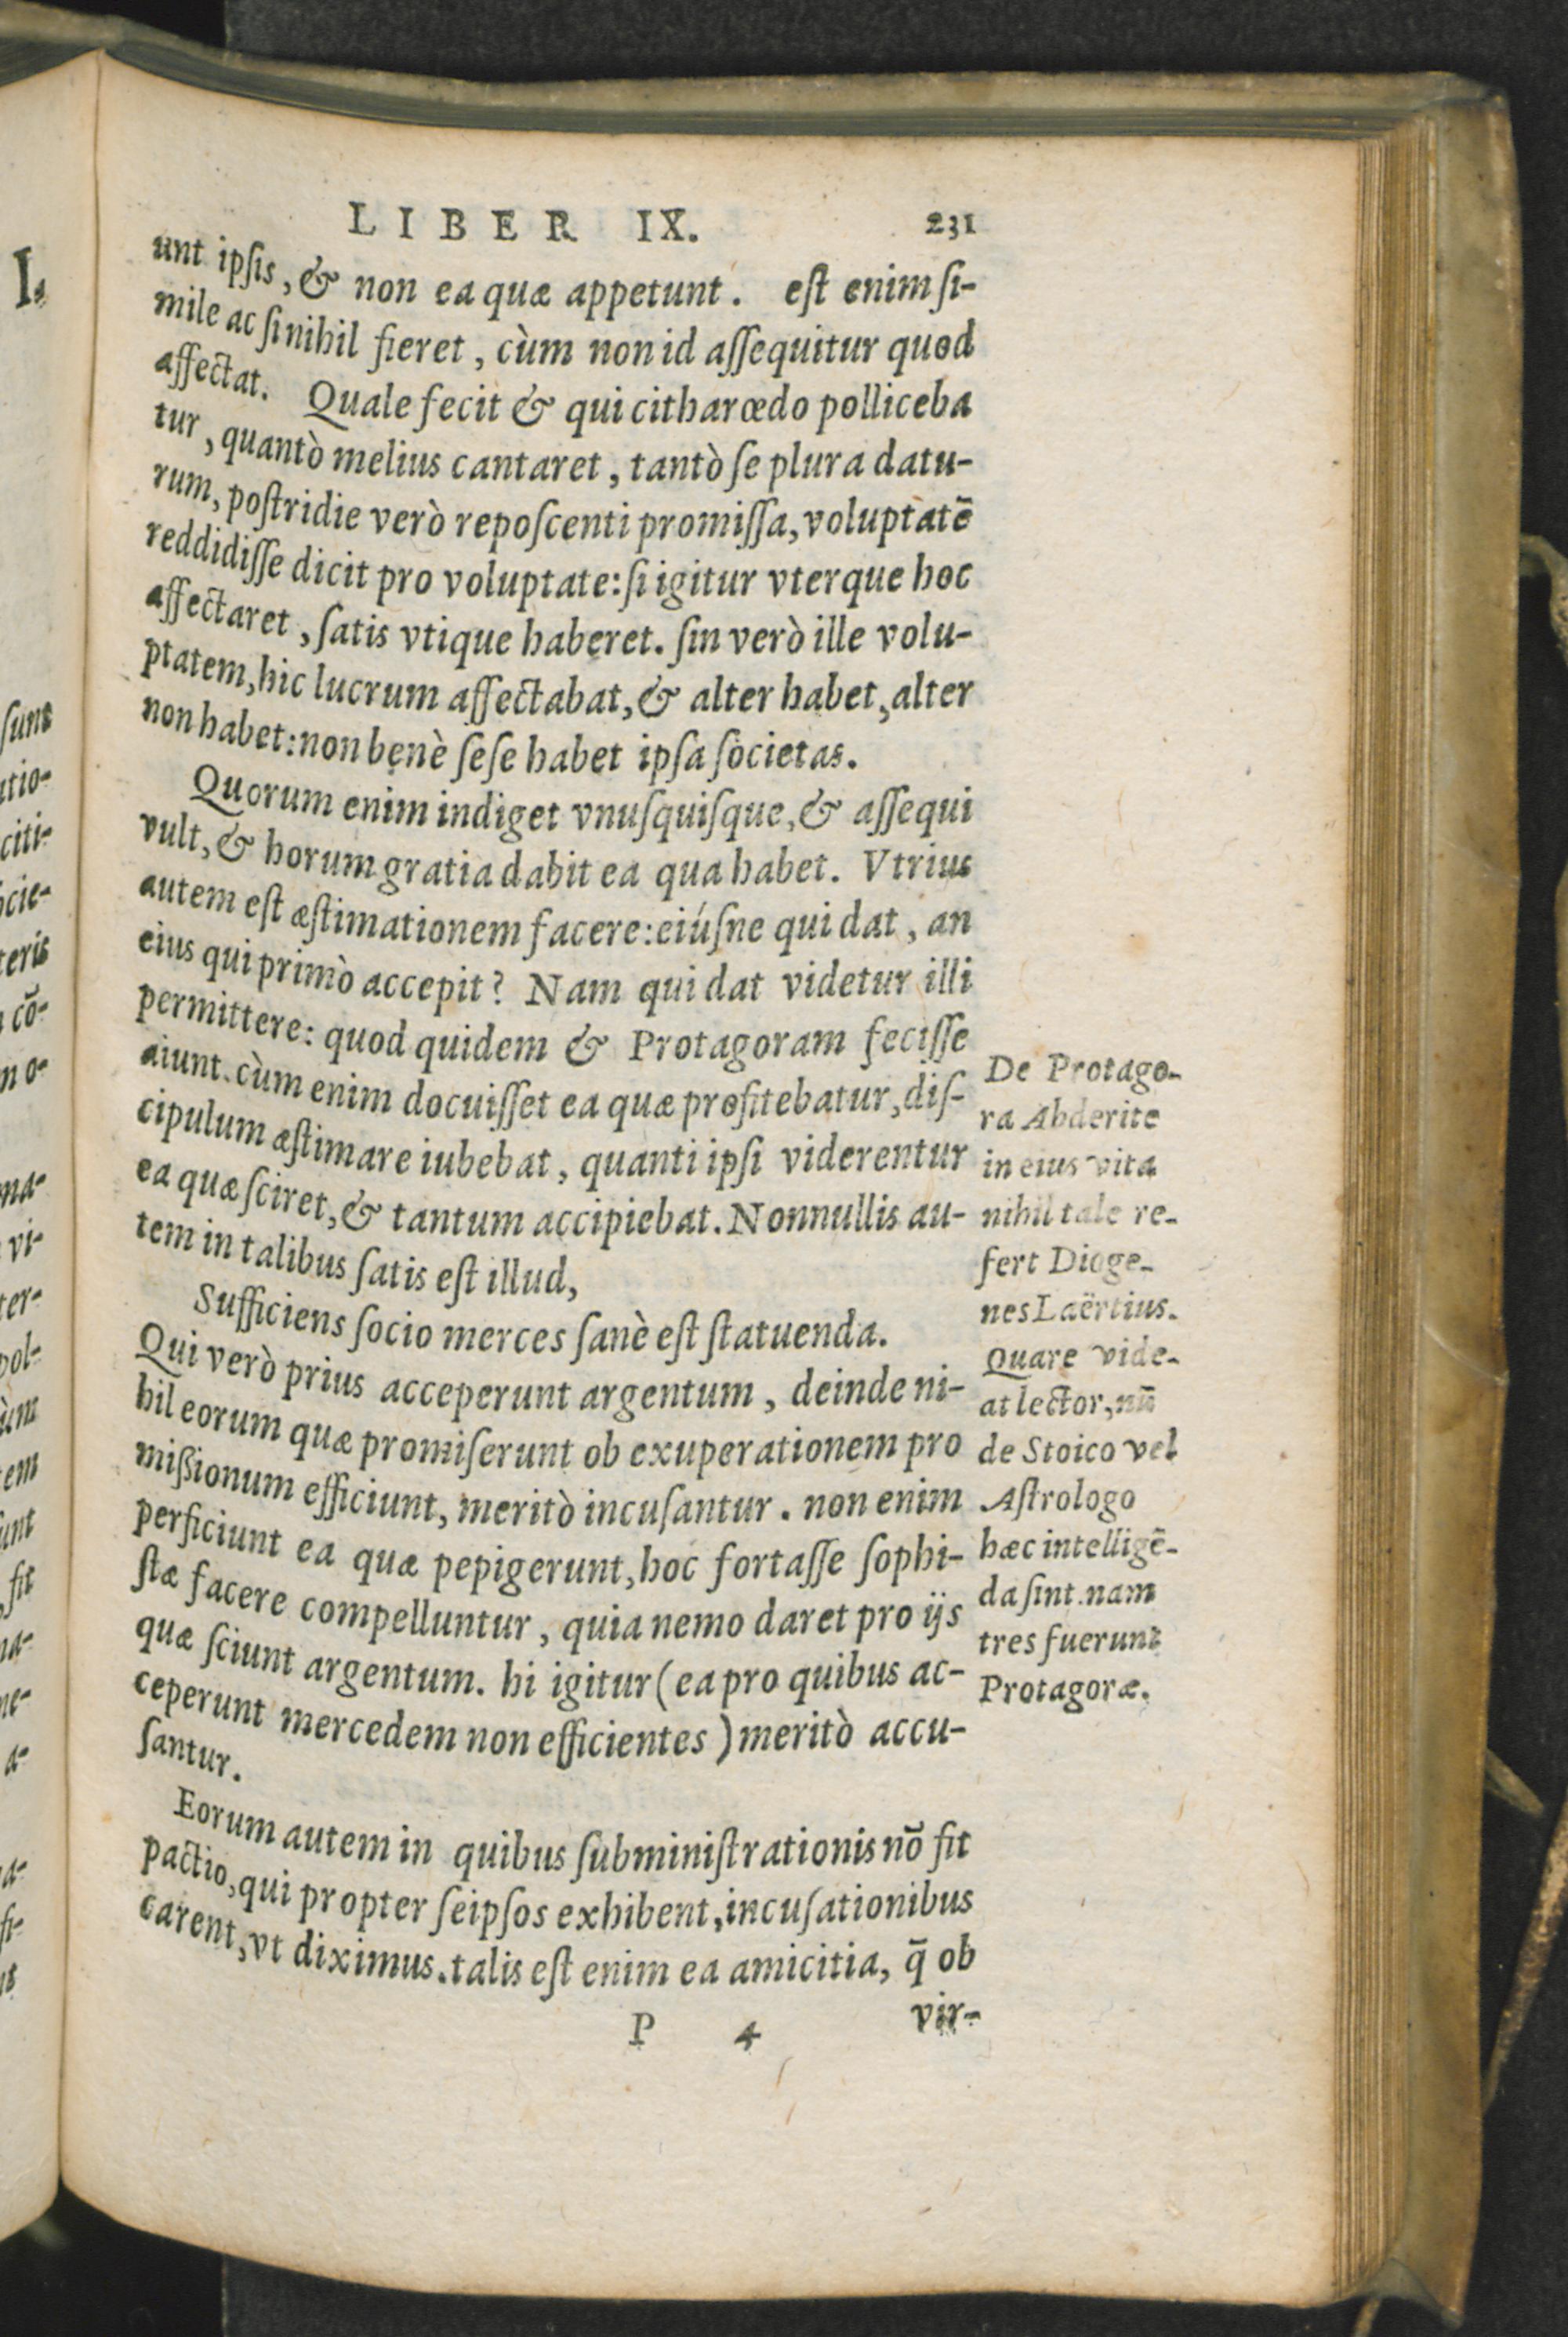 LIBER IX. 231
unt ipſis, & non ea quæ appetunt. eſt enim ſi-
mile ac ſi nihil fieret, cùm non id aſſequitur quod
affectat. Quale fecit & qui citharœdo polliceba
tur, quantò melius cantaret, tantò ſe plura datu-
rum, poſtridie verò repoſcenti promiſſa, voluptatē
reddidiſſe dicit pro voluptate: ſi igitur vterque hoc
affectaret, ſatis vtique haberet. ſin verò ille volu-
ptatem, hic lucrum affectabat, & alter habet, alter
non habet: non benè ſeſe habet ipſa ſocietas.
Quorum enim indiget vnuſquiſque, & aſſequi
vult, & horum gratia dabit ea qua habet. Vtrius
autem eſt æſtimationem facere: eiúſne qui dat, an
eius qui primò accepit? Nam qui dat videtur illi
permittere: quod quidem & Protagoram feciſſe
aiunt. cùm enim docuiſſet ea quæ profitebatur, diſ-
cipulum æſtimare iubebat, quanti ipſi viderentur
ea quæ ſciret, & tantum accipiebat. Nonnullis au-
tem in talibus ſatis eſt illud,
Sufficiens ſocio merces ſanè eſt ſtatuenda.
Qui verò prius acceperunt argentum, deinde ni-
hil eorum quæ promiſerunt ob exuperationem pro
miſsionum efficiunt, meritò incuſantur. non enim
perficiunt ea quæ pepigerunt, hoc fortaſſe ſophi-
ſtæ facere compelluntur, quia nemo daret pro ijs
quæ ſciunt argentum. hi igitur (ea pro quibus ac-
ceperunt mercedem non efficientes) meritò accu-
ſantur.
Eorum autem in quibus ſubminiſtrationis nō fit
pactio, qui propter ſeipſos exhibent, incuſationibus
carent, vt diximus. talis eſt enim ea amicitia, q̄ ob
P 4 vir-
De Protago-
ra Abderite
in eius vita
nihil tale re-
fert Dioge-
nes Laërtius.
Quare vide-
at lector, nū
de Stoico vel
Aſtrologo
hæc intelligē-
da ſint. nam
tres fuerunt
Protagoræ.